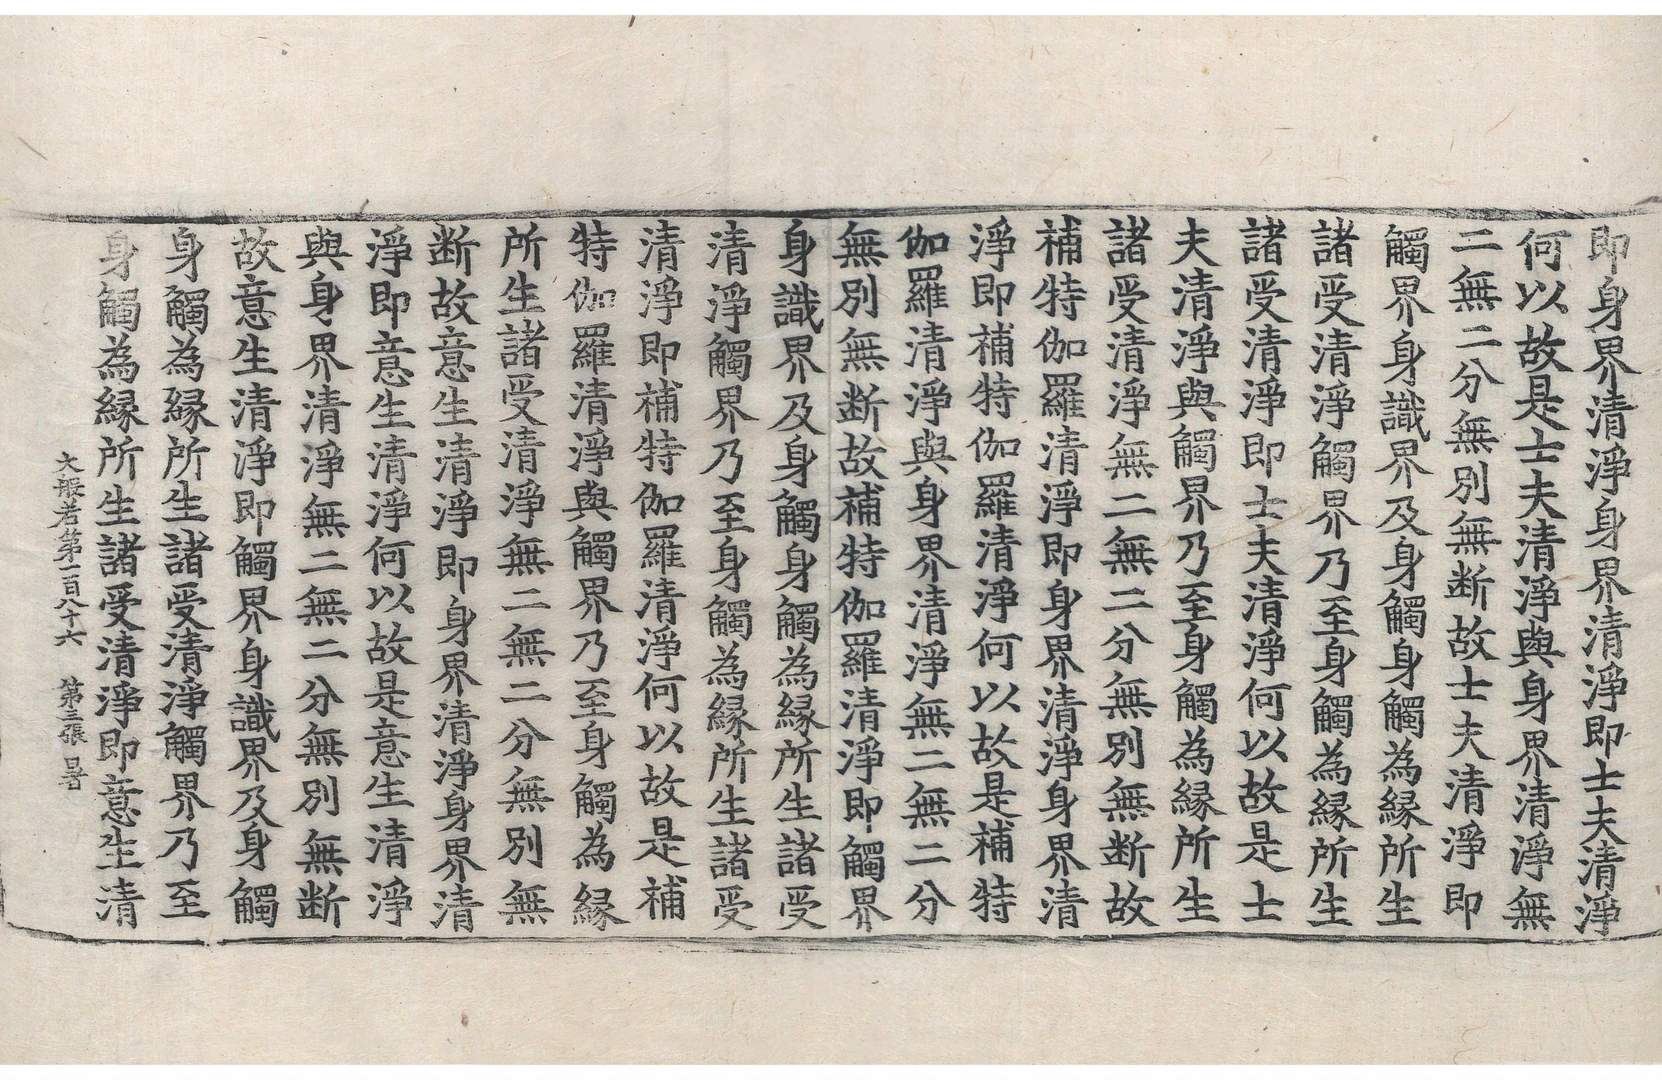 即身界清淨身界清淨即士夫清淨
何以故是士夫清淨與身界清淨無
二無二分無別無断故士夫清淨即
觸界身識界及身觸身觸為縁所生
諸受清淨觸界乃至身觸為縁所生
諸受清淨即士夫清淨何以故是士
夫清淨與觸界乃至身觸為縁所生
諸受清淨無二無二分無別無断故
補特伽羅清淨即身界清淨身界清
淨即補特伽羅清淨何以故是補特
伽羅清淨與身界清淨無二無二分
無別無断故補特伽羅清淨即觸界
身識界及身觸身觸為縁所生諸受
清淨觸界乃至身觸為縁所生諸受
清淨即補特伽羅清淨何以故是補
特伽羅清淨與觸界乃至身觸為縁
所生諸受清淨無二無二分無別無
断故意生清淨即身界清淨身界清
淨即意生清淨何以故是意生清淨
與身界清淨無二無二分無別無断
故意生清淨即觸界身識界及身觸
身觸為縁所生諸受清淨觸界乃至
身觸為縁所生諸受清淨即意生清
大般若第一百八十六 第三張